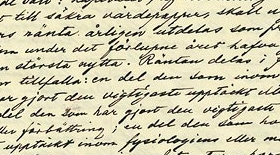 till säkra värdepapper, skall
ränta årligen utdelas som
under det förlupne året hafva
största nytta. Räntan delas i
tillfalla: en del den som inom
gjort den vigtigaste upptäckt eller
del den som har gjort den vigtigaste
eller förbättring; en del den som har
upptäckt inom fysiologiens eller